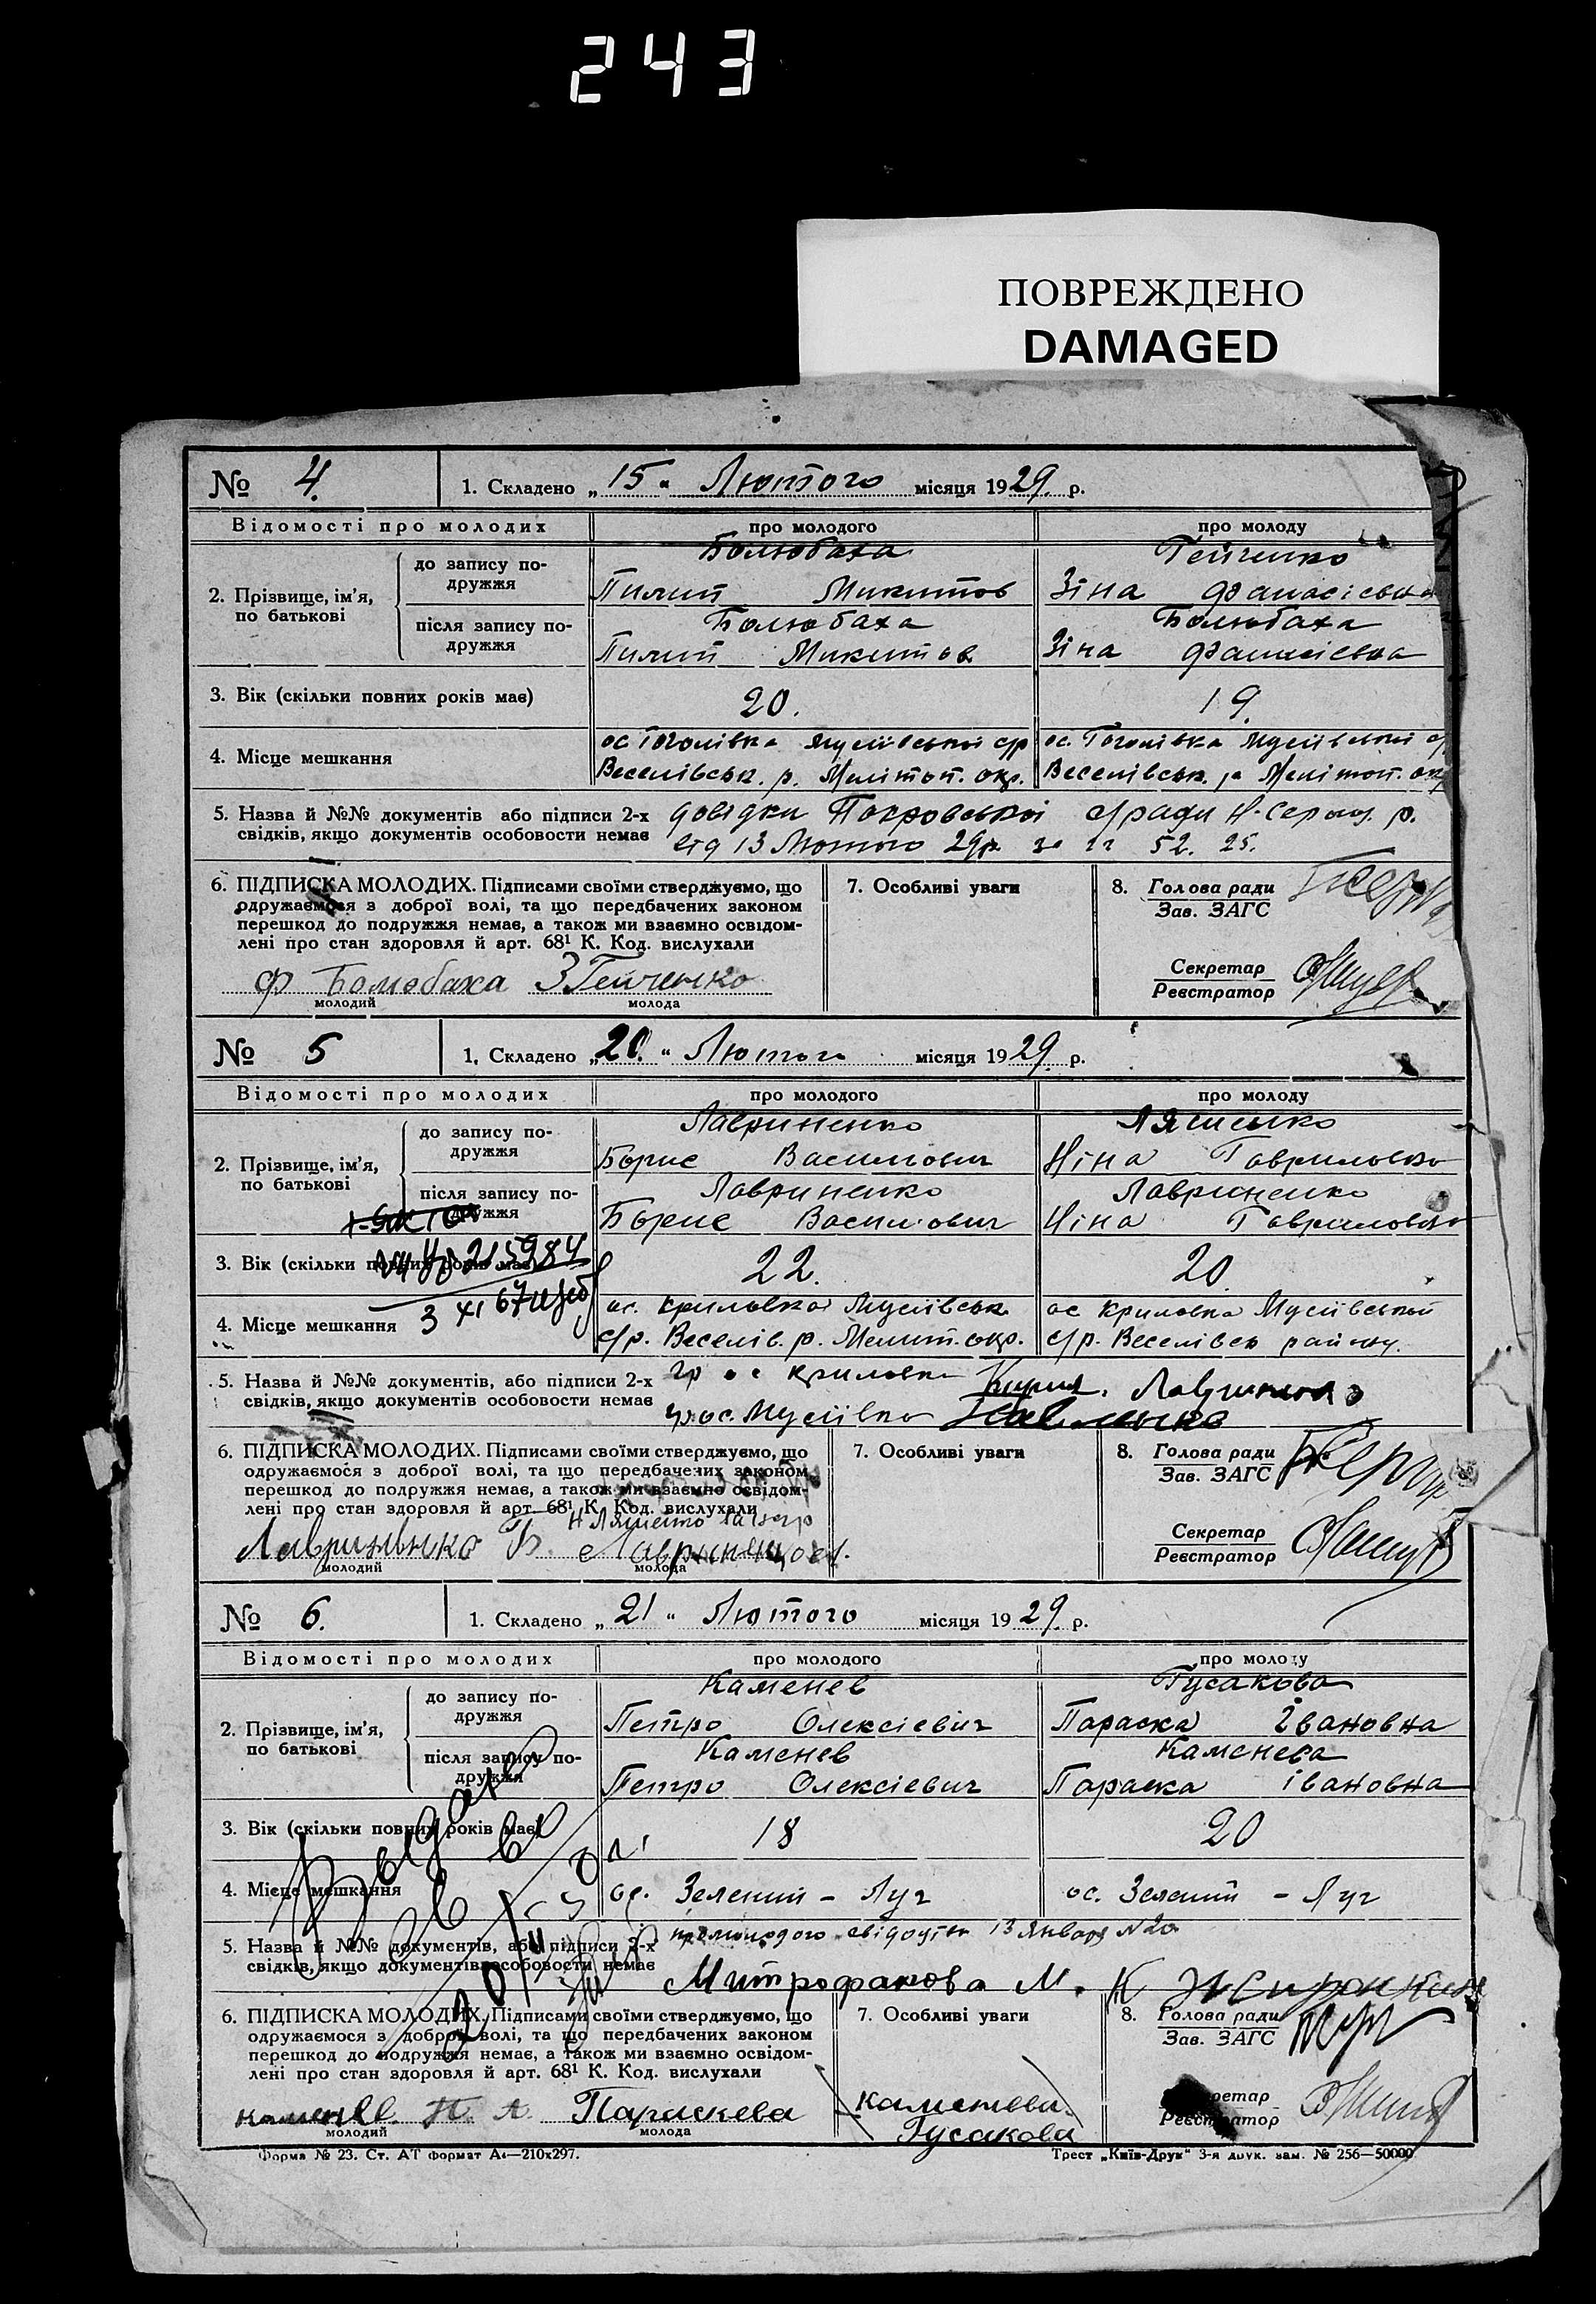 243
ПОВРЕЖДЕНО
DAMAGED
№ 4. 1. Складено „15“ Лютого місяця 1929. р.
Відомості про молодих про молодого про молоду
2. Прізвище, ім’я, по батькові
до запису подружжя
Болюбаха Гейченко
Пилип Микитов Зіна Фанасієвна
після запису подружжя
Болюбаха Болюбаха
Пилип Микитов Зіна Фанасієвна
3. Вік (скільки повних років має) 20. 19.
4. Місце мешкання
ос Гоголівка Мусіївської с/р ос. Гоголівка Мусіївської с/
Веселівськ. р. Меліт��п. окр. Веселівськ. р. Мелітоп. окр
5. Назва й №№ документів або підписи 2-х довідки Покровської с/ради Н-Серагоз. р.
свідків, якщо документів особовости немає від 13 Лютого 29р. за 52. 25.
6. ПІДПИСКА МОЛОДИХ. Підписами своїми стверджуємо, що 7. Особливі уваги 8. Голова ради
одружаємося з доброї волі, та що передбачених законом Зав. ЗАГС
перешкод до подружжя немає, а також ми взаємно освідом-
лені про стан здоровля й арт. 68¹ К. Код. вислухали
Секретар
Реєстратор
Ф Болюбаха З Гейченко
молодий молода
№ 5 1. Складено „20.“ Лютого місяця 1929. р.
Відомості про молодих про молодого про молоду
2. Прізвище, ім’я, по батькові
до запису подружжя
Лавриненко Ляшенко
Борис Васильович Ніна Гавриловна
після запису подружжя
Лавриненко Лавриненко
Борис Васильович Ніна Гавриловна
3. Вік (скільки повних років має) 22. 20
215984
3 XI 67
4. Місце мешкання
ос. Криловка Мусіївськ ос Криловка Мусіївської
с/р. Веселів. р. Мелит. окр. с/р. Веселівск району.
5. Назва й №№ документів, або підписи 2-х гр ос Криловки Кирил. Лавриненко
свідків, якщо документів особовости немає гр. ос. Мусіївка
6. ПІДПИСКА МОЛОДИХ. Підписами своїми стверджуємо, що 7. Особливі уваги 8. Голова ради
одружаємося з доброї волі, та що передбачених законом Зав. ЗАГС
перешкод до подружжя немає, а також ми взаємно освідом-
лені про стан здоровля й арт. 68¹ К. Код. вислухали
Секретар
Реєстратор
Н Ляшенко
Лавриненко Б.
молодий молода
№ 6. 1. Складено „21“ Лютого місяця 1929. р.
Відомості про молодих про молодого про молоду
2. Прізвище, ім’я, по батькові
до запису подружжя
Каменев Гусакова
Петро Олексієвич Параска Івановна
після запису подружжя
Каменев Каменева
Петро Олексієвич Параска івановна
3. Вік (скільки повних років має) 18 20
4. Місце мешкання ос. Зелений – Луч ос. Зелений – Луч
5. Назва й №№ документів, або підписи 2-х 13 Января N 20
свідків, якщо документів особовости немає Митрофанова М.
6. ПІДПИСКА МОЛОДИХ. Підписами своїми стверджуємо, що 7. Особливі уваги 8. Голова ради
одружаємося з доброї волі, та що передбачених законом Зав. ЗАГС
перешкод до подружжя немає, а також ми взаємно освідом-
лені про стан здоровля й арт. 68¹ К. Код. вислухали
Секретар
Реєстратор
Каменев. П. А. Параскева Каменева
молодий молода Гусакова
Форма № 23. Ст. АТ формат А₄—210х297. Трест „Київ-Друк“ 3-я друк. зам. № 256—50000